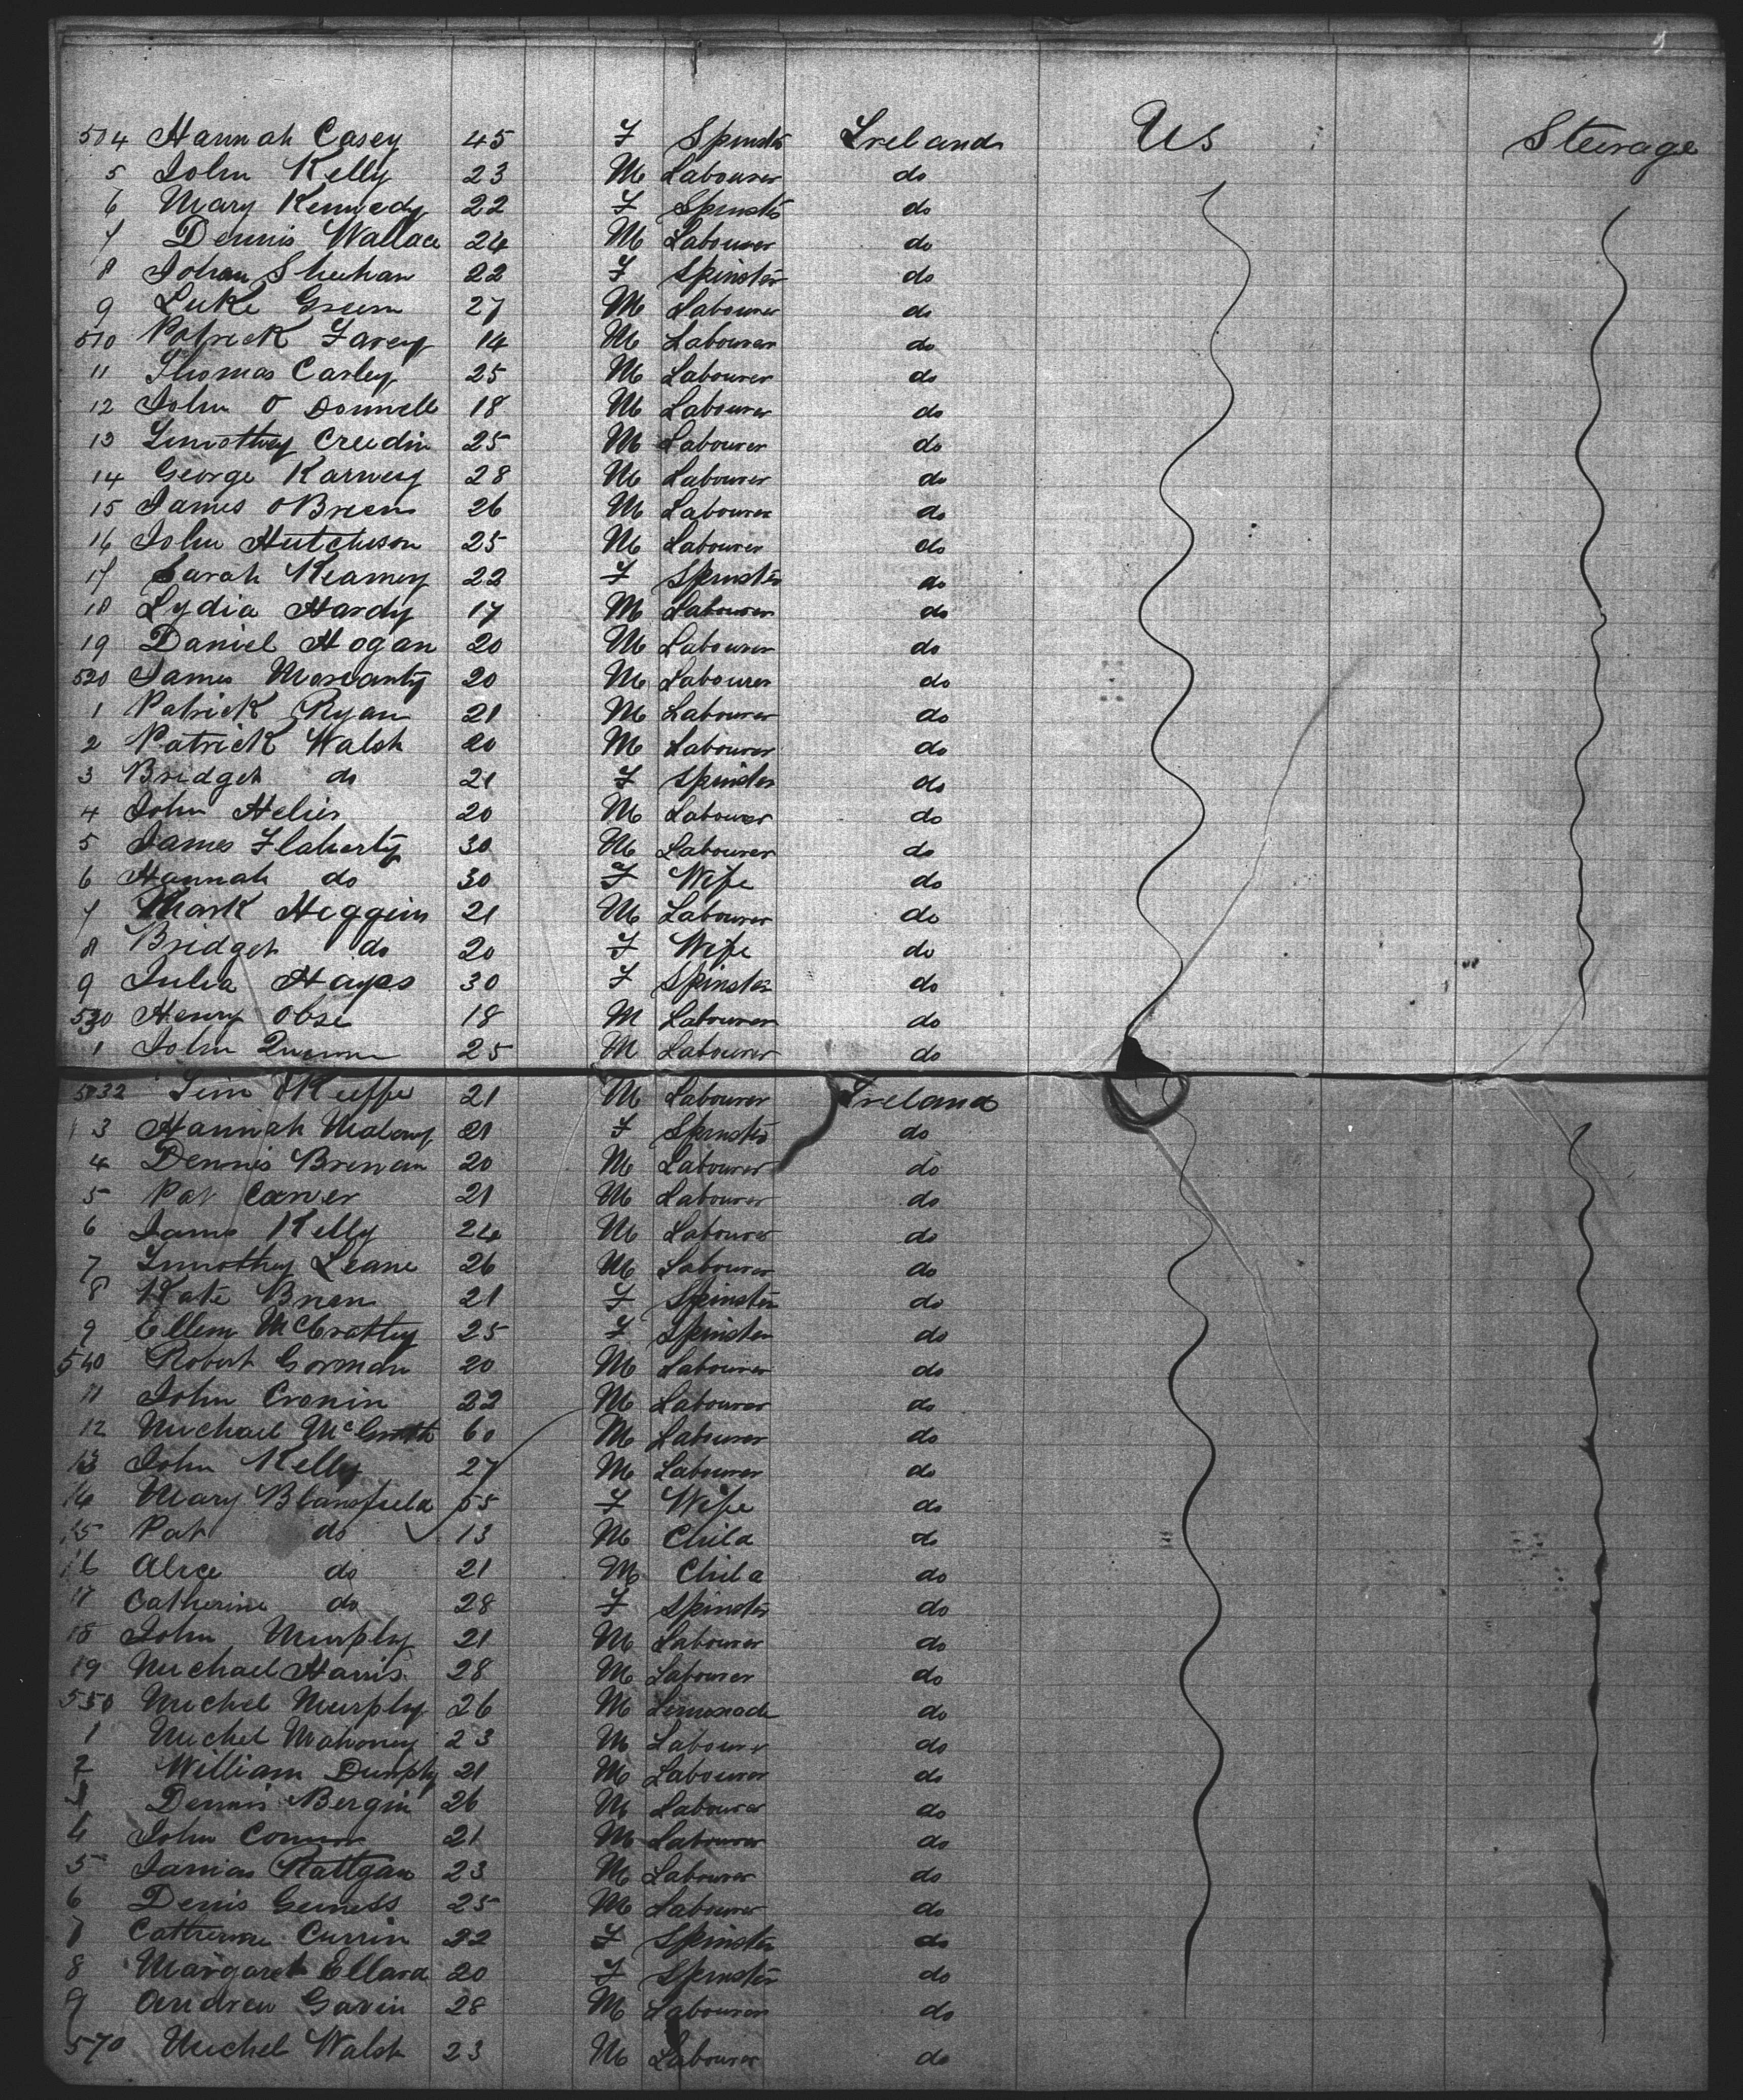 504 Hannah Casey 45 F Spinster Ireland Us Steerage
5 John Kelly 23 M Labourer do
6 Mary Kennedy 22 F Spinster do
7 Dennis Wallace 24 M Labourer do
8 Johan Sheehan 22 F Spinster do
9 Luke Green 27 M Labourer do
510 Patrick 14 M Labourer do
11 Thomas Carley 25 M Labourer do
12 John O Donnell 18 M Labourer do
13 Timothy Creedin 25 M Labourer do
14 George Karney 28 M Labourer do
15 James OBrien 26 M Labourer do
16 John Hutcheson 25 M Labourer do
17 Sarah Kearney 22 F Spinster do
18 Lydia Hardy 17 M Labourer do
19 Daniel Hogan 20 M Labourer do
520 James 20 M Labourer do
1 Patrick Ryan 21 M Labourer do
2 Patrick Walsh 20 M Labourer do
3 Bridget do 21 F Spinster do
4 John 20 M Labourer do
5 James Flaherty 30 M Labourer do
6 Hannah do 30 F Wife do
7 Mark Heggins 21 M Labourer do
8 Bridget do 20 F Wife do
9 Julia Hayes 30 F Spinster do
530 Henry 18 M Labourer do
1 John 25 M Labourer do
532 Jim OKeeffe 21 M Labourer Ireland
3 Hannah Malony 21 F Spinster do
4 Dennis Brenan 20 M Labourer do
5 Pat Carver 21 M Labourer do
6 James Kelly 24 M Labourer do
7 Timothy Leane 26 M Labourer do
8 Kate Brien 21 F Spinster do
9 Ellen McCratty 25 F Spinster do
540 Robert Gorman 20 M Labourer do
11 John Cronin 22 M Labourer do
12 Michael McGrath 60 M Labourer do
13 John Kelly 27 M Labourer do
14 Mary Blansfield 55 F Wife do
15 Pat do 13 M Child do
16 Alice do 21 M Child do
17 Catherine do 28 F Spinster do
18 John Murphy 21 M Labourer do
19 Michael Harris 28 M Labourer do
550 Michel Murphy 26 M do
1 Michel Mahoney 23 M Labourer do
2 William Dunphy 21 M Labourer do
3 Dennis Bergin 26 M Labourer do
4 John Connor 21 M Labourer do
5 James Rattgan 23 M Labourer do
6 Denis 25 M Labourer do
7 Catherine Currin 22 F Spinster do
8 Margaret Ellard 20 F Spinster do
9 Andrew Gavin 28 M Labourer do
570 Michel Walsh 23 M Labourer do